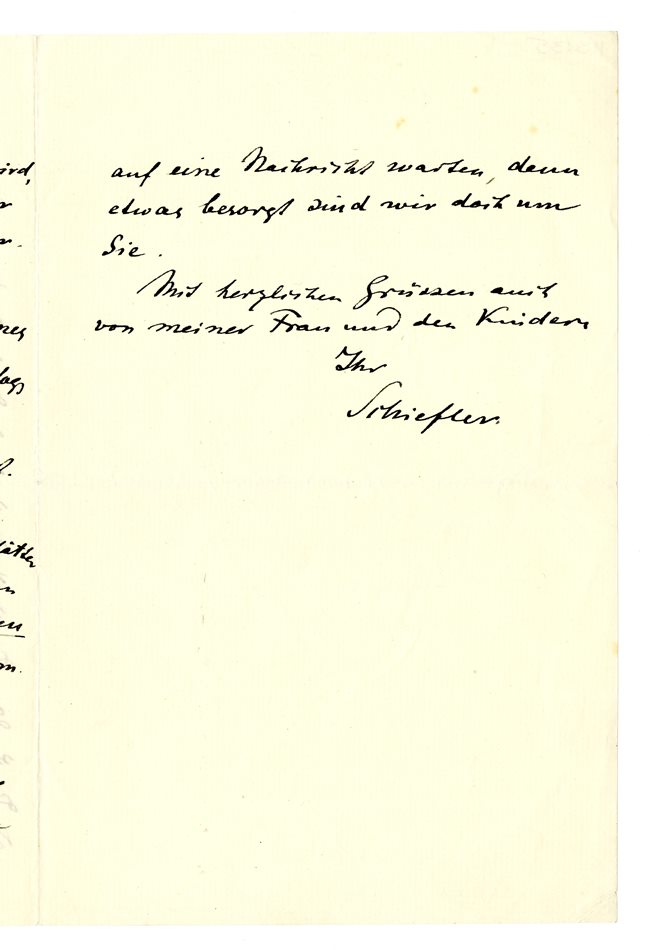 auf eine Nachricht warten, denn
etwas besorgt sind wir doch um
Sie.
Mit herzlichen Grüssen auch
von meiner Frau und den Kindern
Ihr
Schiefler.